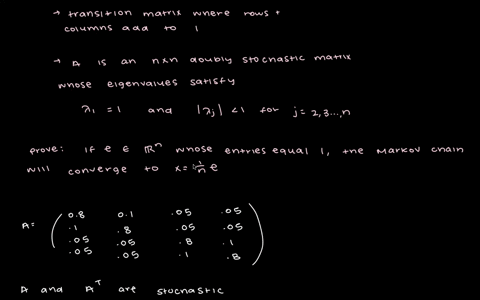 → transition matrix where rows +
columns add to 1
→ A is an nxn doubly stochastic matrix
whose eigenvalues satisfy
λ₁ = 1 and |λⱼ| < 1 for j = 2,3...,n
prove: if e ∈ ℝⁿ whose entries equal 1, the Markov chain
will converge to x = 1/n e
A = ( 0.8 0.1 .05 .05
.1 .8 .05 .05
.05 .05 .8 .1
.05 .05 .1 .8 )
A and Aᵀ are stochastic